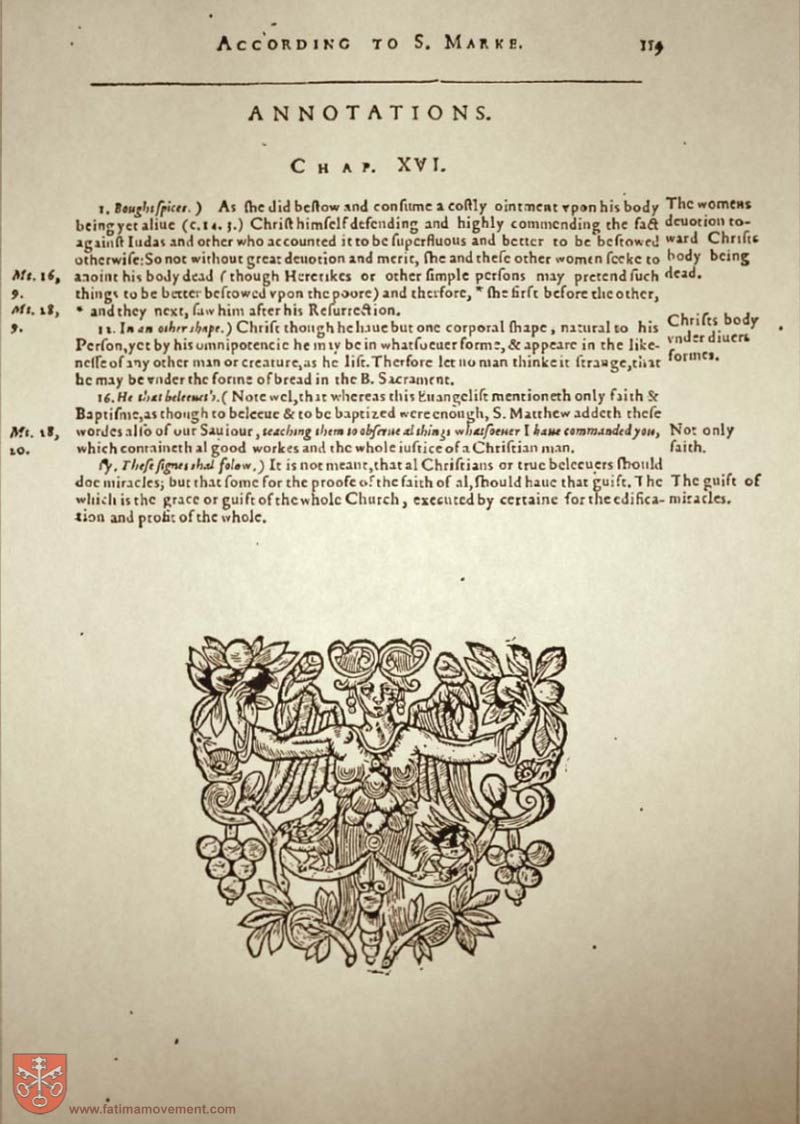 ACCORDING TO S. MARKE.
119
ANNOTATIONS.
CHAP. XVI.
1. Bought ſpices.) As ſhe did beſtow and conſume a coſtly ointment vpon his body
being yet aliue (c. 14. 3.) Chriſt himſelf defending and highly commending the fact
againſt Iudas and other who accounted it to be ſuperfluous and better to be beſtowed
otherwiſe: So not without great deuotion and merit, ſhe and theſe other women ſeeke to
anoint his body dead (though Heretikes or other ſimple perſons may pretend ſuch
things to be better beſtowed vpon the poore) and therfore, * ſhe firſt before the other,
* and they next, ſaw him after his Reſurrection.
12. In an other ſhape.) Chriſt though he haue but one corporal ſhape, natural to his
Perſon, yet by his omnipotencie he may be in whatſoeuer forme, & appeare in the like-
neſſe of any other man or creature, as he liſt. Therfore let no man thinke it ſtrange, that
he may be vnder the forme of bread in the B. Sacrament.
16. He that beleeueth.( Note wel, that whereas this Euangeliſt mentioneth only faith &
Baptiſme, as though to beleeue & to be baptized were enough, S. Matthew addeth theſe
wordes alſo of our Sauiour, teaching them to obſerue al things whatſoeuer I haue commanded you,
which containeth al good workes and the whole iuſtice of a Chriſtian man.
17. Theſe ſignes ſhal folow.) It is not meant, that al Chriſtians or true beleeuers ſhould
doe miracles; but that ſome for the proofe of the faith of al, ſhould haue that guift. The
which is the grace or guift of the whole Church, executed by certaine for the edifica-
tion and profit of the whole.
Mr. 16,
9.
Mt. 28,
9.
Mt. 28,
20.
The womens
deuotion to-
ward Chriſts
body being
dead.
Chriſts body
vnder diuers
formes.
Not only
faith.
The guift of
miracles.
www.fatimamovement.com